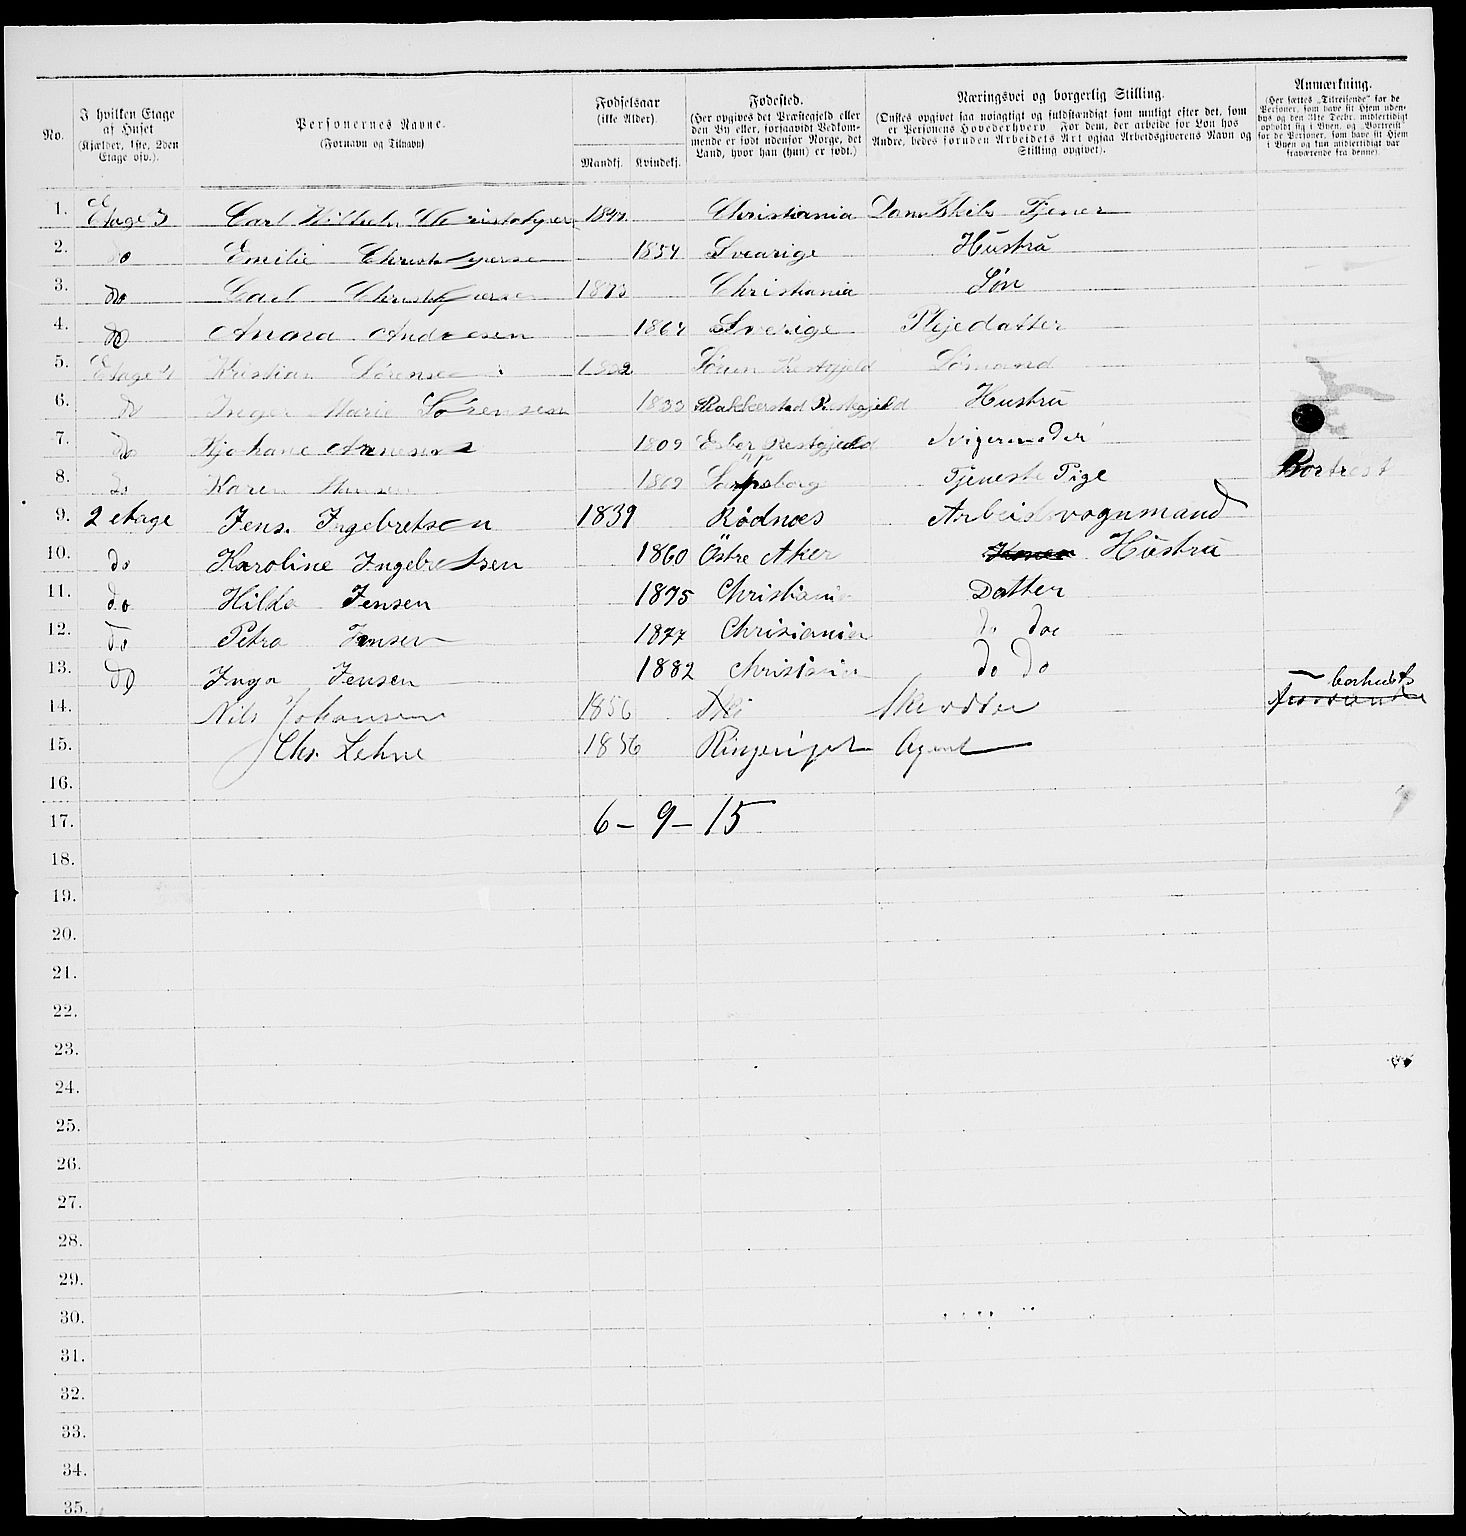 No.
I hvilken Etage af Huset (Kjælder, 1ste, 2den Etage osv.).
Personernes Navne. (Fornavn og Tilnavn)
Fødselsaar (ikke Alder). Mandkj. Kvindekj.
Fødested. (Her opgives det Præstegjeld eller den By eller, forsaavidt Vedkommende er født udenfor Norge, det Land, hvor han (hun) er født.)
Næringsvei og borgerlig Stilling. (Ønskes opgivet saa nøiagtigt og fuldstændigt som muligt efter det, som er Personens Hovederhverv. For dem, der arbeide for Løn hos Andre, bedes foruden Arbeidets Art ogsaa Arbeidsgiverens Navn og Stilling opgivet).
Anmærkning. (Her sættes „Tilreisende" for de Personer, som have sit Hjem udenbys og den 31te Decbr. midlertidigt opholdt sig i Byen, og „Bortreist" for de Personer, som have sit Hjem i Byen og kun midlertidigt var fraværende fra denne).
1. Etage 3 Carl Wilhelm Christiania Tjener
2. do Emilie 1854 Svearige Hustru
3. do Carl Christiania Søn
4. do Andresen Sverige Plejedatter
5. Etage Kristian Sørensen Sømand
6. do Inger Marie Sørensen 1833 Hustru
7. do 1809 Svigermoder
8. do Karen Sarpsborg Tjeneste Pige Bortrest
9. 2 etage Jens. Ingebretsen 1839 Rødnæs Arbeidsvognmand
10. do Karoline Ingebretsen 1860 Östre Aker Konen Hüstru
11. do Hilda Jensen 1875 Christiania Datter
12. do Petra Jensen 1877 Chrisiania do do
13. do Inga Jensen 1882 Christiania do do
14. Nils Johansen 1856 Ski
15. Chr. Lehne 1856 Agent
16.
17. 6 – 9 – 15
18.
19.
20.
21.
22.
23.
24.
25.
26.
27.
28.
29.
30.
31.
32.
33.
34.
35.